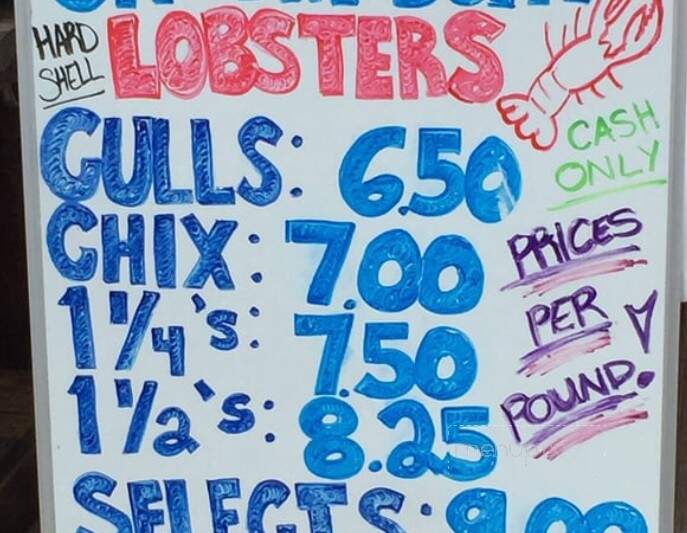 HARD SHELL
LOBSTERS
CASH ONLY
GULLS: 6.50
CHIX: 7.00
1 1/4's: 7.50
1 1/2's: 8.25
SELECTS: 9.00
PRICES
PER
POUND!